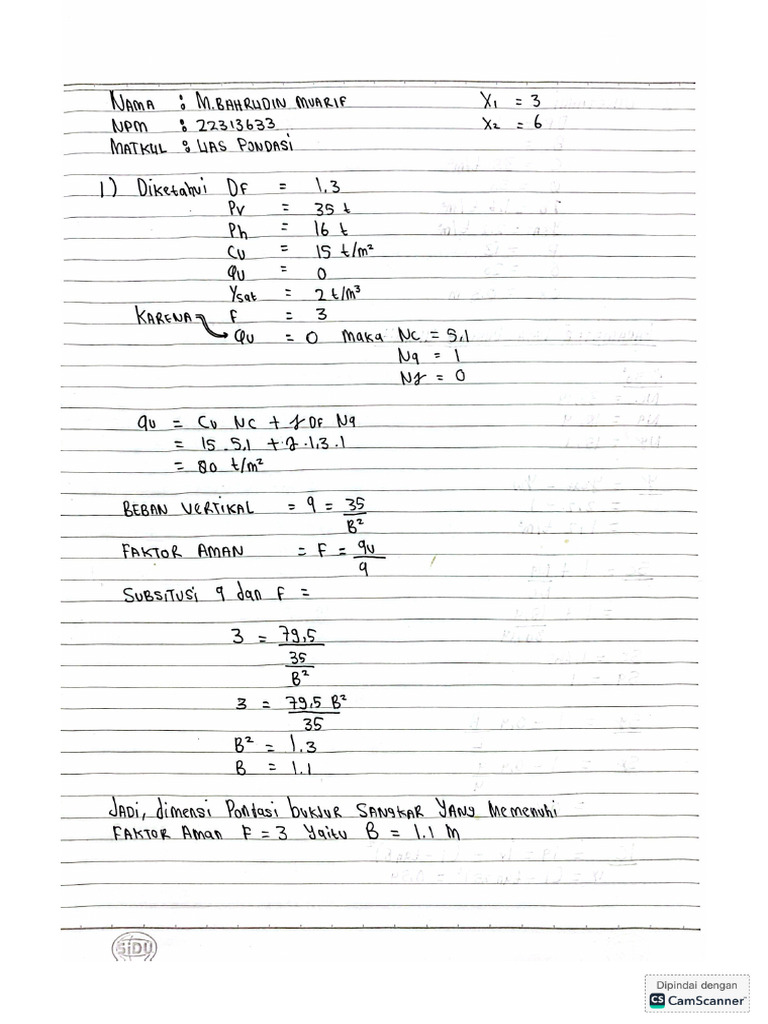 NAMA : M.BAHRUDIN MUARIF X1 = 3
NPM : 22313633 X2 = 6
MATKUL : UAS PONDASI
1) Diketahui DF = 1.3
Pv = 35 t
Ph = 16 t
Cu = 15 t/m²
φu = 0
γsat = 2 t/m³
F = 3
KARENA → φu = 0 maka Nc = 5,1
Nq = 1
Nγ = 0
qu = Cu Nc + γ DF Nq
= 15 . 5,1 + 2 . 1,3 . 1
= 80 t/m²
BEBAN VERTIKAL = q = 35/B²
FAKTOR AMAN = F = qu/q
SUBSITUSI q dan F =
3 = 79,5
35
B²
3 = 79,5 B²
35
B² = 1.3
B = 1.1
JADI, dimensi Pondasi bukjur SANGKAR YANG Memenuhi
FAKTOR Aman F = 3 Yaitu B = 1.1 M
SiDU
Dipindai dengan
CS CamScanner